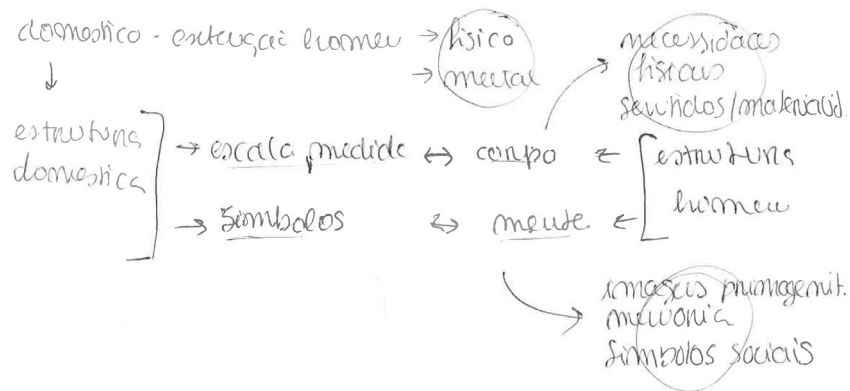 domestico - extensão homem → físico
→ mental
↓
necessidades
físicas
sentidos/materialid.
estrutura
domestica
→ escala, medida ↔ corpo ← estrutura
homem
→ símbolos ↔ mente ←
imagens primogenit.
memória
símbolos sociais